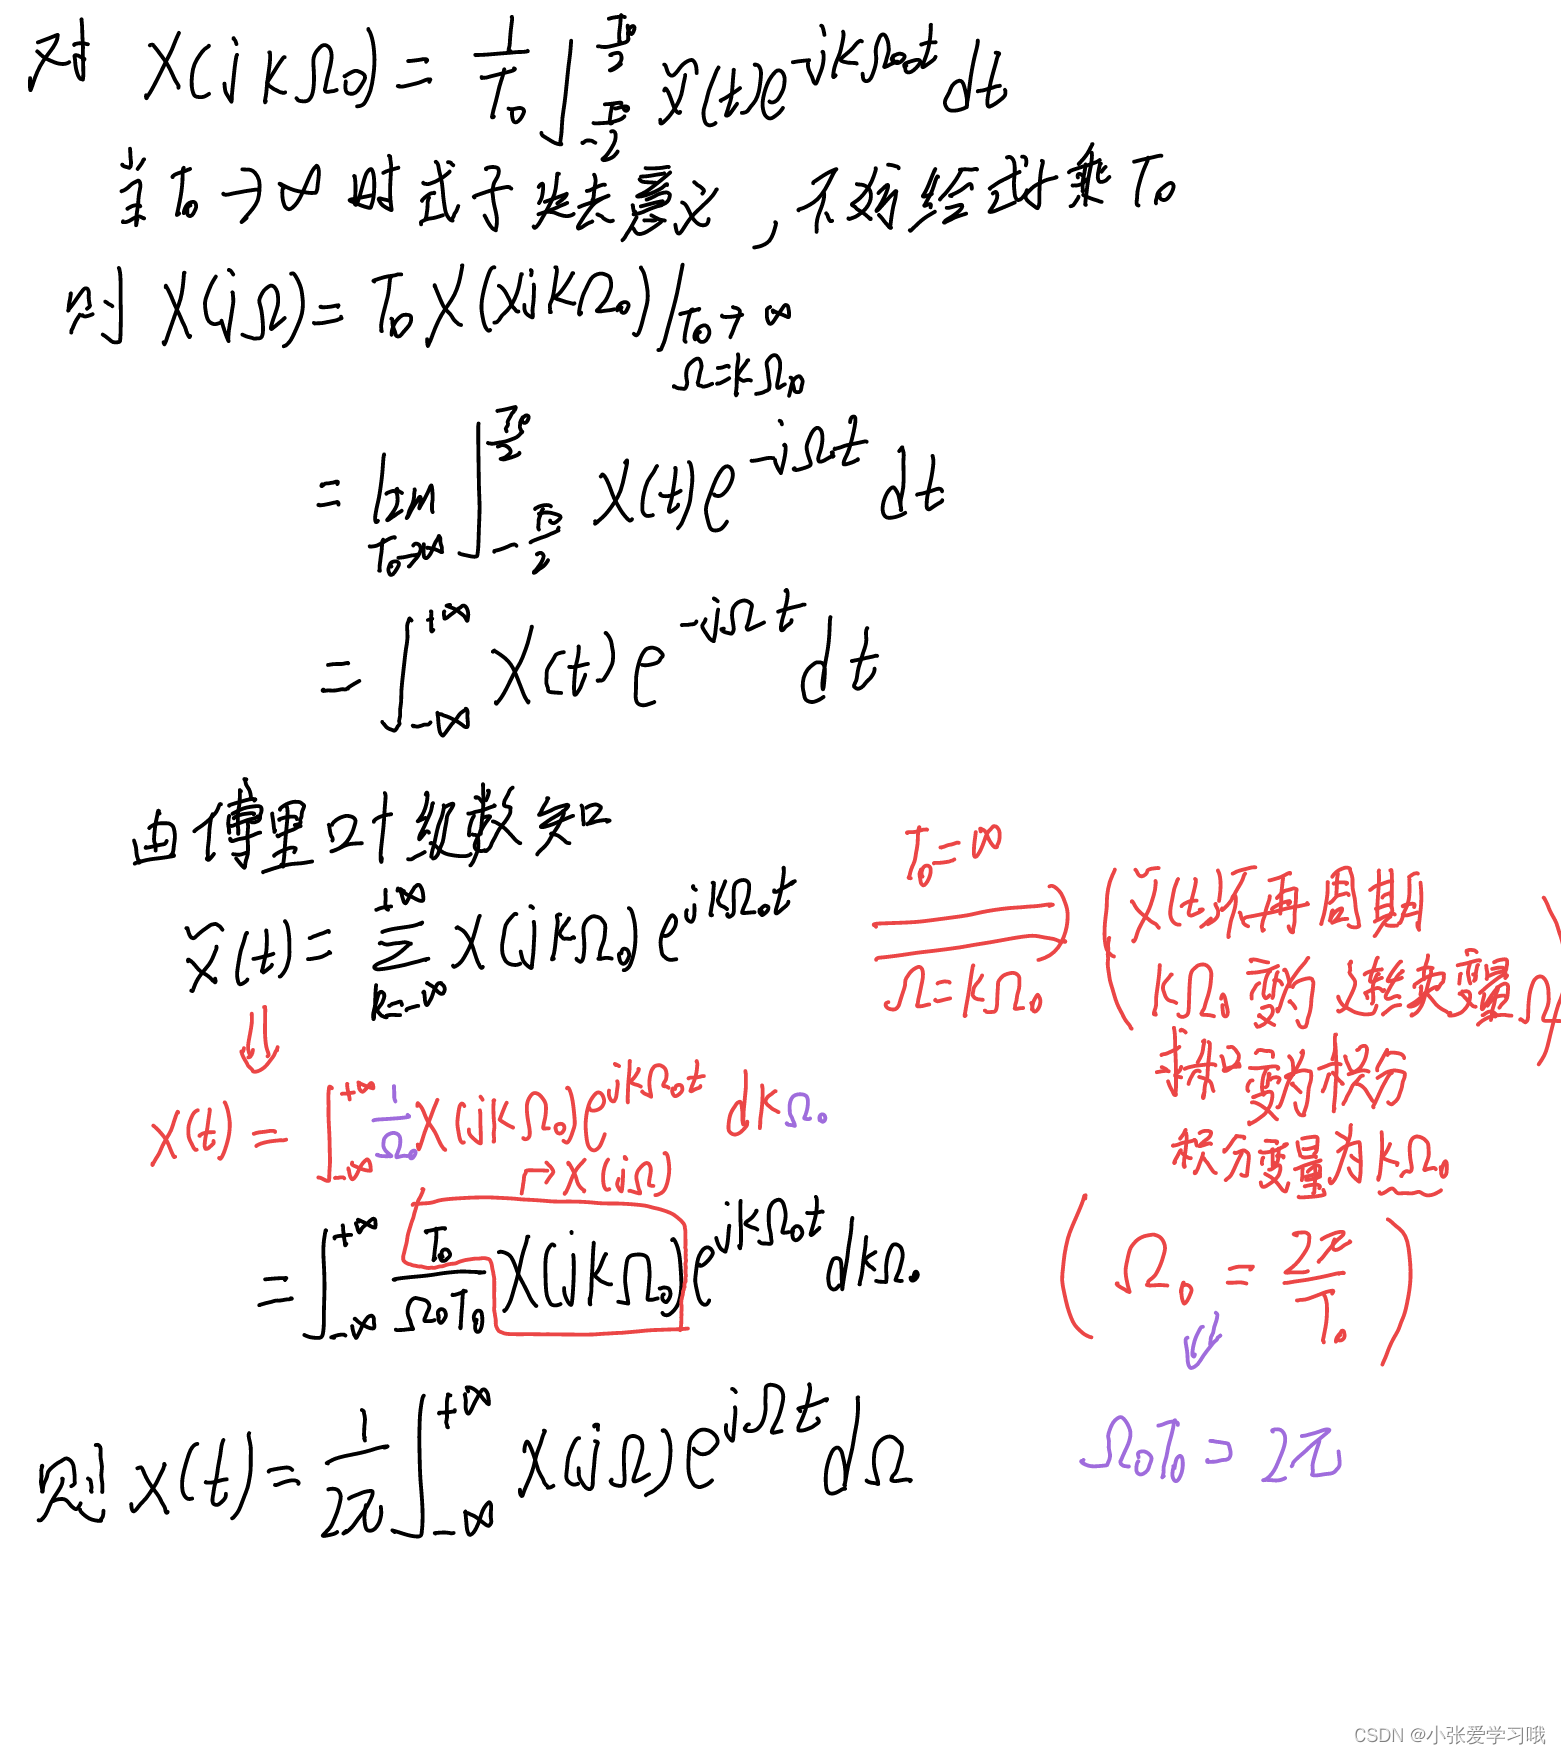 对 X(jkΩ₀) = 1/T₀ ∫_{-T₀/2}^{T₀/2} x̃(t)e^{-jkΩ₀t} dt
当 T₀→∞ 时式子失去意义，不妨给式子乘T₀
则 X(jΩ) = T₀X(xjkΩ₀)|_{T₀→∞ Ω=kΩ₀}
= lim_{T₀→∞} ∫_{-T₀/2}^{T₀/2} x(t)e^{-jΩt} dt
= ∫_{-∞}^{+∞} x(t)e^{-jΩt} dt
由傅里叶级数知
x̃(t) = Σ_{k=-∞}^{+∞} X(jkΩ₀)e^{jkΩ₀t}
T₀=∞
Ω=kΩ₀
(x̃(t)不再周期
kΩ₀变为连续变量Ω)
求和变为积分
积分变量为kΩ₀
⇓
x(t) = ∫_{-∞}^{+∞} 1/Ω₀ X(jkΩ₀)e^{jkΩ₀t} dkΩ₀
→X(jΩ)
= ∫_{-∞}^{+∞} T₀/(Ω₀T₀) X(jkΩ₀)e^{jkΩ₀t} dkΩ₀
(Ω₀ = 2π/T₀)
⇓
Ω₀T₀ = 2π
则 x(t) = 1/2π ∫_{-∞}^{+∞} X(jΩ)e^{jΩt} dΩ
CSDN @小张爱学习哦